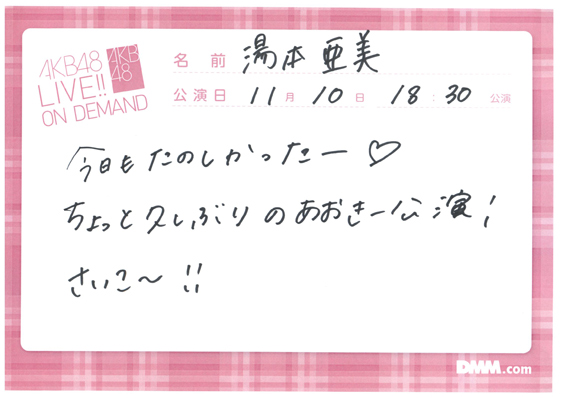 AKB48
LIVE!!
ON DEMAND
AKB
48
名前 湯本亜美
公演日 11月10日 18:30公演
今日もたのしかったー♡
ちょっと久しぶりのあおきー公演!
さいこ〜!!
DMM.com